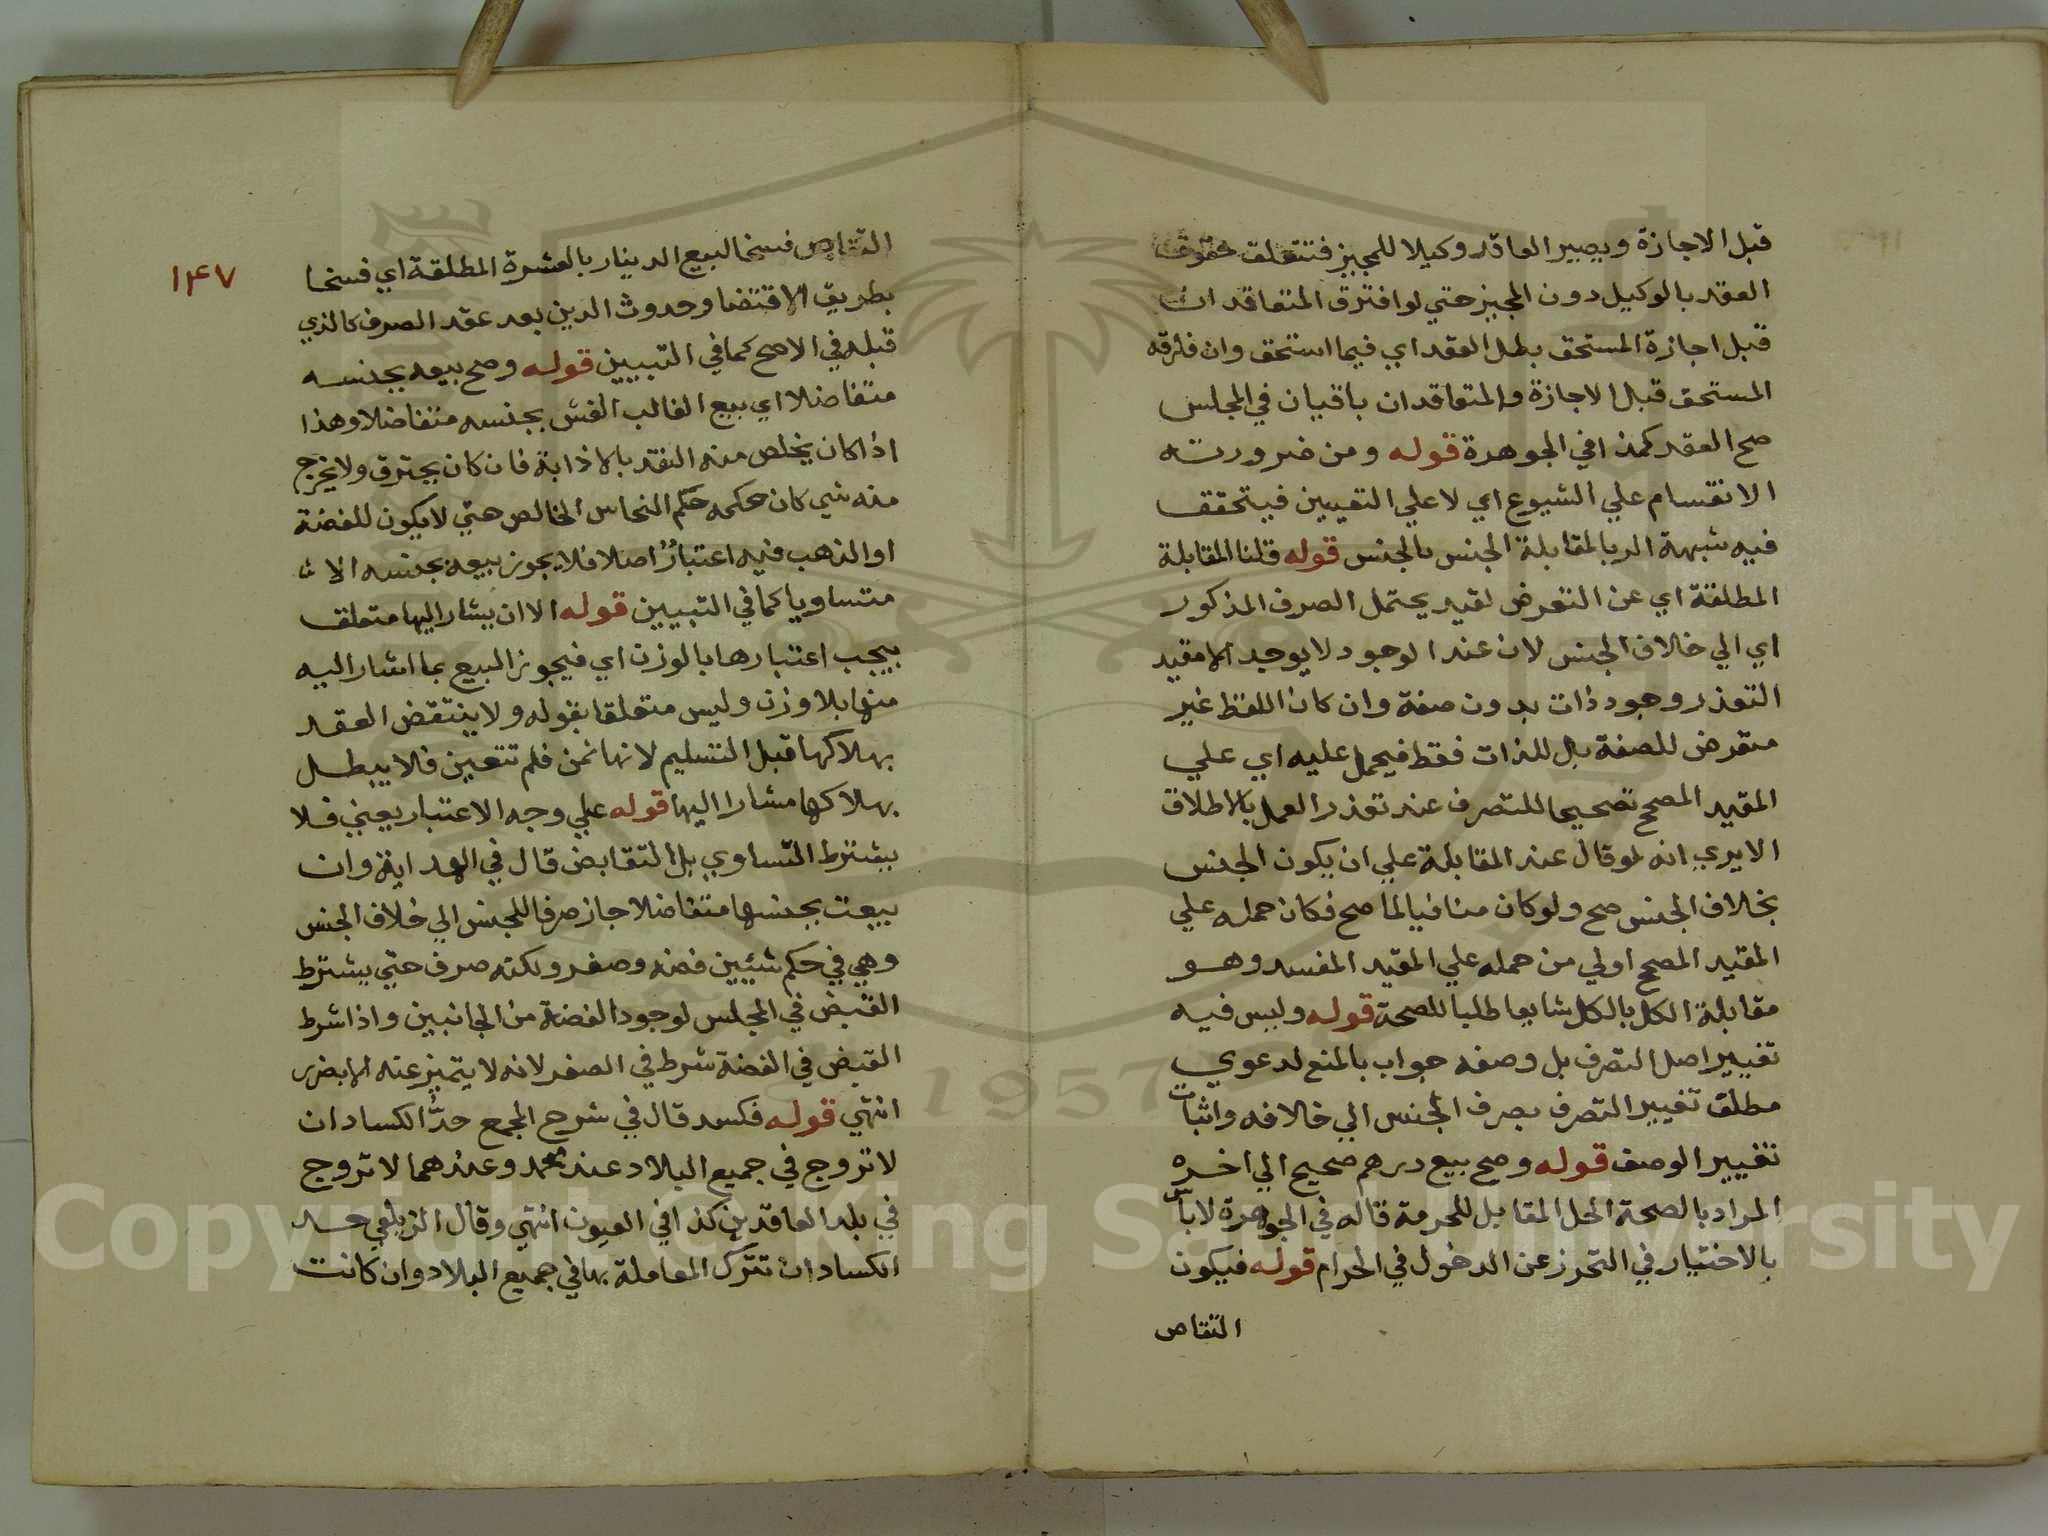 قبل الاجازة ويصير العاقد وكيلا للمجيز فتتعلق حقوق
العقد بالوكيل دون المجيز حتي لوافترق المتعاقدان
قبل اجازة المستحق بطل العقد اي فيما استحق وان فارقه
المستحق قبل الاجازة والمتعاقدان باقيان في المجلس
صح العقد كمذا في الجوهرة قوله ومن ضرورته
الانقسام علي الشيوع اي لا علي التعيين فيتحقق
فيه شبهة الربا لمقابلة الجنس بالجنس قوله قلنا المقابلة
المطلقة اي عن التعرض لقيد يحتمل الصرف المذكور
اي الي خلاف الجنس لان عند الوجود لا يوجد الا مقيد
التعذر وجود ذات بدون صفة وان كان اللفظ غير
متعرض للصفة بل للذات فقط فيحمل عليه اي علي
المقيد المصحح تصحيحا للتصرف عند تعذر العمل بالاطلاق
الايري انه لو قال عند المقابلة علي ان يكون الجنس
بخلاف الجنس صح ولو كان منافيا لما صح فكان حمله علي
المقيد المصحح اولي من حمله علي المقيد المفسد وهو
مقابلة الكل بالكل شايعا طلبا للصحة قوله وليس فيه
تغيير اصل التصرف بل وصفه جواب بالمنع لدعوي
مطلق تغيير التصرف بصرف الجنس الي خلافه واثبات
تغيير الوصف قوله وصح بيع درهم صحيح الي اخره
المراد بالصحة الحل المقابل للحرمة قاله في الجوهرة لا بأس
بالاختيار في التحرز عن الدخول في الحرام قوله فيكون
التقاص
١٤٧
التقاص فسخا لبيع الدينار بالعشرة المطلقة اي فسخا
بطريق الاقتضا وحدوث الدين بعد عقد الصرف كالذي
قبله في الاصح كما في التبيين قوله وصح بيعه بجنسه
متفاضلا اي بيع الغالب الغش بجنسه متفاضلا وهذا
اذا كان يخلص منه النقد بالاذابة فان كان يحترق ولا يخرج
منه شي كان حكمه حكم النحاس الخالص حتي لا يكون للفضة
او الذهب فيه اعتبار اصلا فلا يجوز بيعه بجنسه الا
متساويا كما في التبيين قوله الا ان يشار اليها متعلق
بيجب اعتبارها بالوزن اي فيجوز البيع بما اشار اليه
منها بلا وزن وليس متعلقا بقوله ولا ينتقض العقد
بهلاكها قبل التسليم لانها ثمن فلم تتعين فلا يبطل
بهلاكها مشارا اليها قوله علي وجه الاعتبار يعني فلا
يشترط التساوي بل التقابض قال في الهداية وان
بيعت بجنسها متفاضلا جاز صرفا للجنس الي خلاف الجنس
وهي في حكم شيئين فضه وصفر ولكنه صرف حتي يشترط
القبض في المجلس لوجود الفضة من الجانبين واذا شرط
القبض في الفضة شرط في الصفر لانه لا يتميز عنه الا بضرر
انتهي قوله فكسد قال في شرح المجمع حد الكساد ان
لا تروج في جميع البلاد عند محمد وعندهما لا تروج
في بلد العاقدين كذا في العيون انتهي وقال الزيلعي حد
الكساد ان تترك المعاملة بها في جميع البلاد وان كانت
Copyright © King Saud University
1957